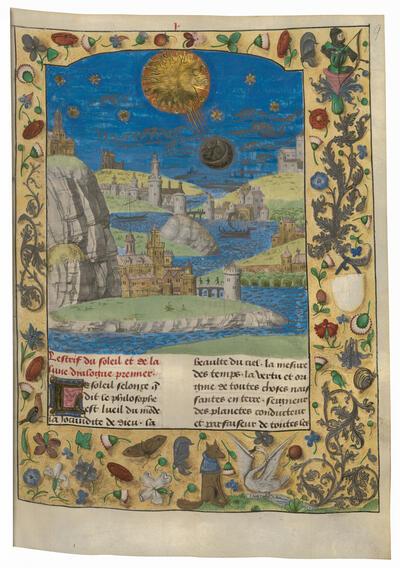 Lestrif du soleil et de la
lune dialogue premier.
Le soleil selonc q
dit le philosophe
est lueil du mõde
la iocundite de dieu . la
beaulte du ciel . la mesure
des temps . la vertu et ori
gine de toutes choses nais
santes en terre . seigneur
des planetes conducteur
et parfaiseur de toutes les